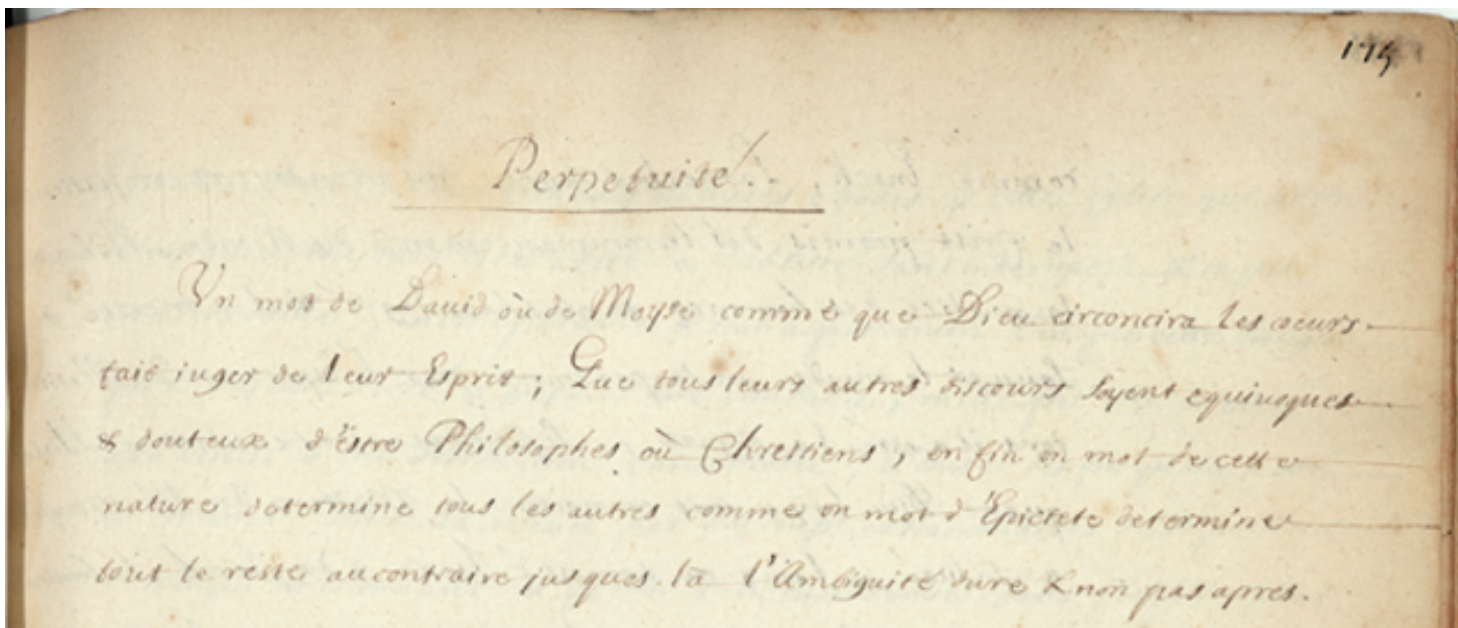 175
Perpetuité.
Vn mot de Dauid où de Moyse comme que Dieu circoncira les coeurs
fait iuger de leur Esprit; Que tous leurs autres discours soyent equiuoques
& douteux d'Estre Philosophes où Chrestiens, en fin vn mot de cette
nature determine tous les autres comme vn mot d'Epictete determine
tout le reste au contraire jusques là l'Ambiguité dure & non pas apres.